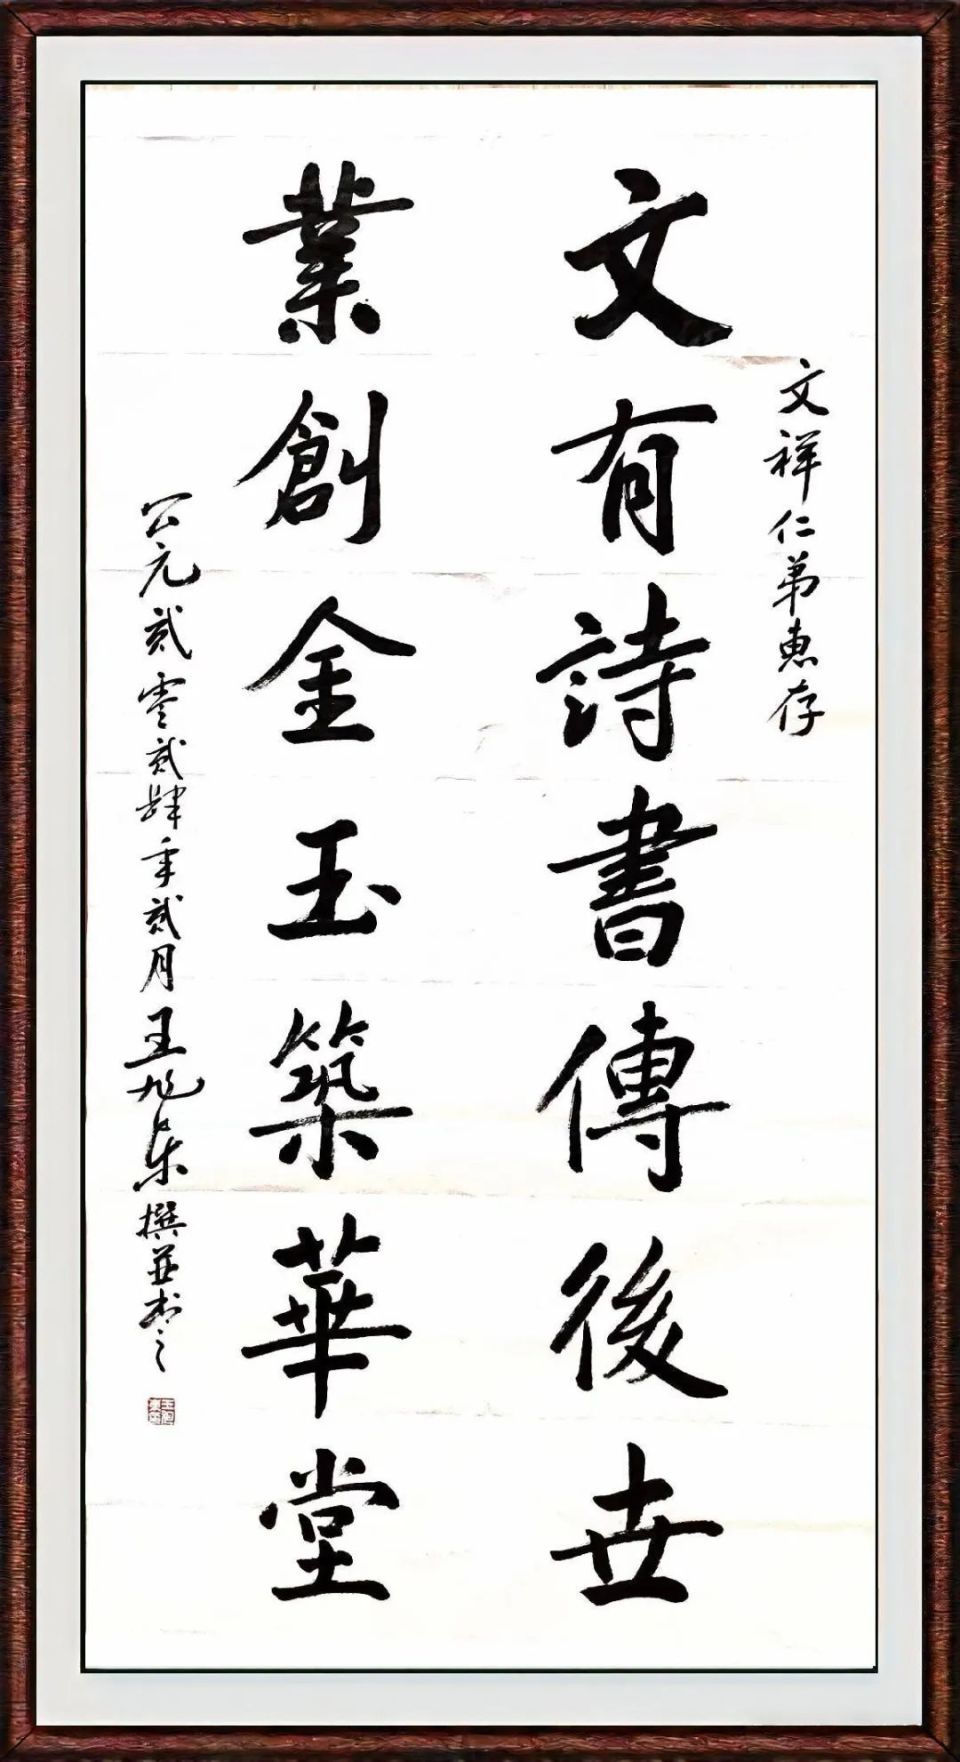 文祥仁弟惠存
文有詩書傳後世
業創金玉築華堂
公元贰零贰肆年贰月王旭東撰並书之